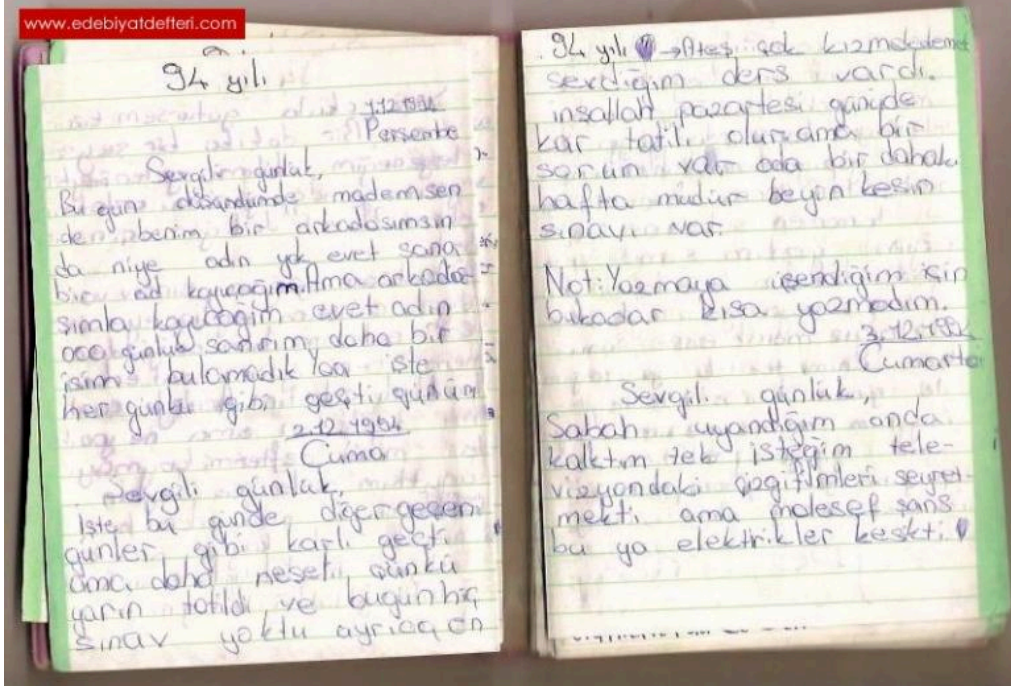 www.edebiyatdefteri.com
94 yılı
1.12.1994
Perşembe
Sevgili günlük,
Bugün düşündümde mademsen
de benim bir arkadaşımsın
da niye adın yok evet sana
bir ad koyacağım. Ama arkada-
şımla koyacağım evet adın
günlük sanırım daha bir
isim bulamadık işte
her günkü gibi geçti günüm
2.12.1994
Cuma
Sevgili günlük,
işte bu günde diğer geçen
günler gibi karlı geçti
ama daha neşeli çünkü
yarın tatildi ve bugün hiç
sınav yoktu ayrıca en
94 yılı → Ateş çok kızma
sevdiğim ders vardı.
inşallah pazartesi günüde
kar tatili olur ama bir
sorun var oda bir dahaki
hafta müdür beyin kesin
sınavı var.
Not: Yazmaya üşendiğim için
bukadar kısa yazmadım.
3.12.1994
Cumarte
Sevgili günlük,
Sabah uyandığım anda
kalktım tek isteğim tele-
vizyondaki çizgifilmleri seyret-
mekti ama malesef şans
bu ya elektrikler keskti.